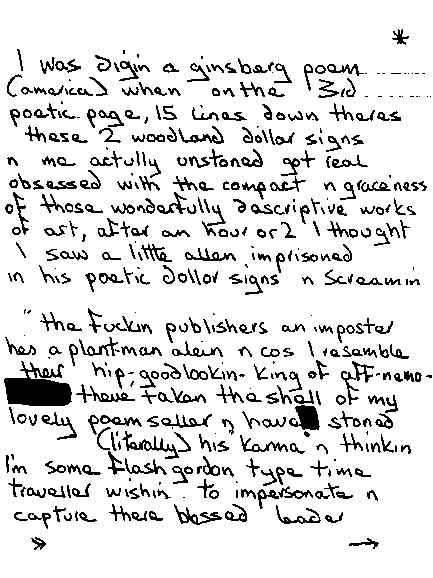 *
I was digin a ginsberg poem
(america) when on the 3rd
poetic page, 15 lines down theres
these 2 woodland dollar signs
n me actully unstoned got real
obsessed with the compact n graceiness
of those wonderfully descriptive works
of art, after an hour or 2 I thought
I saw a little allen imprisoned
in his poetic dollar signs n screamin
"the fuckin publishers an imposter
hes a plantman alein n cos I resemble
their hip-goodlookin-king of aff-nemo-
theve taken the shell of my
lovely poem seller n have stoned
(literally) his karma n thinkin
I'm some flash gordon type time
traveller wishin to impersonate n
capture there blessed leader
» →